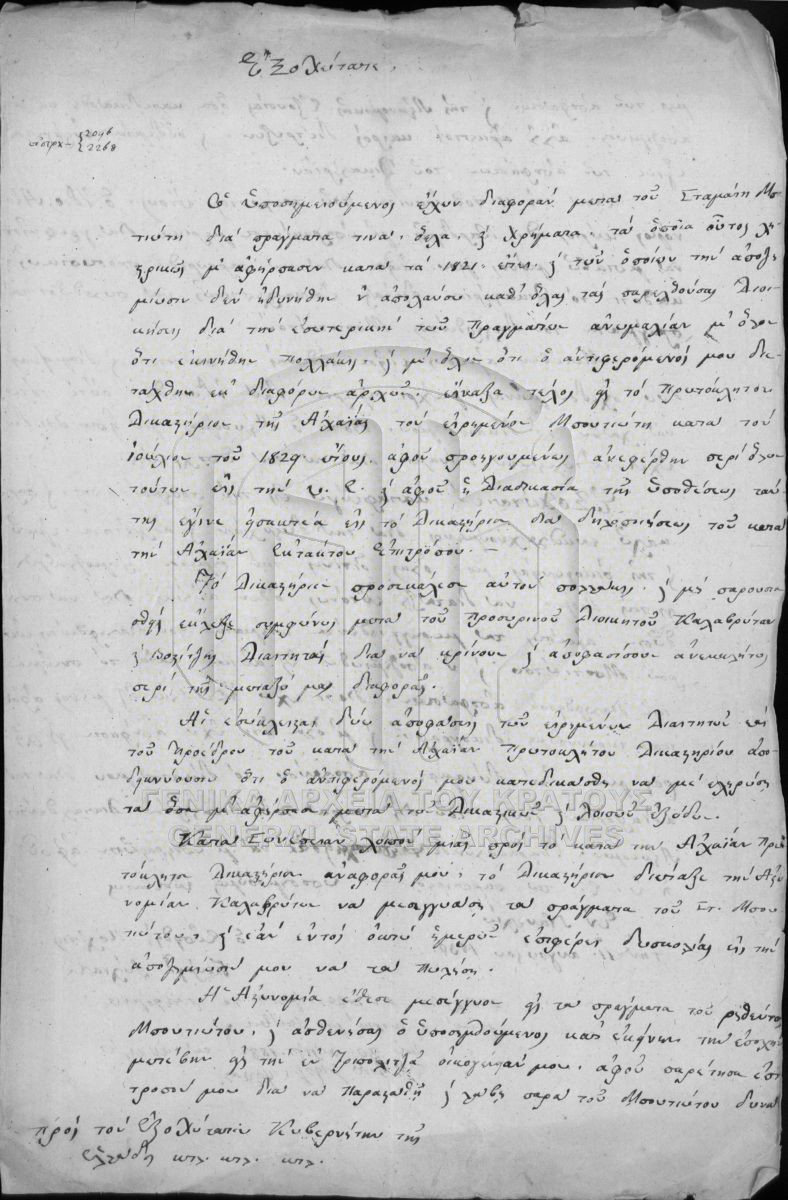 Ἐξοχώτατε.
2046
2268
Ὁ ὑποσημειούμενος ἔχων διαφορὰν μετὰ τοῦ Σταμάτη Μπου
τιώτη διὰ πράγματα τινὰ, ὅπλα, καὶ χρήματα, τὰ ὁποῖα οὗτος
μ' ἀφήρπασεν κατὰ τὸ 1821 ἔτος, καὶ τῶν ὁποίων τὴν ἀποζη
μίωσιν δὲν ἠδυνήθην ν' ἀπολαύσω καθ' ὅλας τὰς παρελθούσας Διοι
κήσεις διὰ τὴν ἐσωτερικὴν τῶν Πραγμάτων ἀνωμαλίαν μ' ὅλον
ὅτι ἐκινήθην πολλάκις, καὶ μ' ὅλον ὅτι ὁ ἀντιφερόμενός μου διε
τάχθη ἐκ διαφόρων ἀρχῶν, τέλος εἰς τὸ Πρωτόκλητον
Δικαστήριον τῆς Ἀχαΐας τὸν εἰρημένον Μπουτιώτη κατὰ τὸν
Ἰούλιον τοῦ 1829 ἔτους, ἀφοῦ προηγουμένως ἀνεφέρθην περὶ ὅλων
τούτων εἰς τὴν υ. Ε. καὶ ἀφοῦ ἡ Διαδικασία τῆς ὑποθέσεως ταύ
της ἔγινε εἰς τὸ Δικαστήριον διὰ τοῦ κατὰ
τὴν Ἀχαΐαν Ἐκτάκτου Ἐπιτρόπου. –
Τὸ Δικαστήριον προσεκάλεσε αὐτὸν πολλάκις, καὶ μὴ παρουσια
σθεὶς ἐκλεξε συμφώνως μετὰ τοῦ προσωρινοῦ Διοικητοῦ Καλαβρύτων
καὶ Βοστίτζης Διαιτητὰς διὰ νὰ κρίνουν καὶ ἀποφασίσουν ἀνεκκλήτως
περὶ τῆς μεταξύ μας διαφορᾶς.
Αἱ ἐσώκλεισται δύω ἀποφάσεις τῶν εἰρημένων Διαιτητῶν
τοῦ Προέδρου τοῦ κατὰ τὴν Ἀχαΐαν Πρωτοκλήτου Δικαστηρίου ἀπο
δεικνύουσιν ὅτι ὁ ἀντιφερόμενός μου κατεδικάσθη νὰ μὲ
τὰ ὅσα μ' ἀφήρπασε μετὰ τῶν Δικαστικῶν καὶ λοιπῶν ἐξόδων.
ΓΕΝΙΚΑ ΑΡΧΕΙΑ ΤΟΥ ΚΡΑΤΟΥΣ
GENERAL STATE ARCHIVES
Κατὰ Συνέπειαν λοιπὸν μιᾶς πρὸς τὸ κατὰ τὴν Ἀχαΐαν Πρω
τόκλητον Δικαστήριον ἀναφορᾶς μου, τὸ Δικαστήριον διέταξε τὴν Ἀστυ
νομίαν Καλαβρύτων νὰ μεσεγγυάσῃ τὰ πράγματα τοῦ Στ. Μπου
τιώτου, καὶ ἐὰν ἐντὸς ὀκτὼ ἡμερῶν ἐπιφέρει δυσκολίας εἰς τὴν
ἀποζημίωσίν μου νὰ τὰ Πωλήσῃ.
Ἡ Ἀστυνομία ἔθεσε μεσέγγυον εἰς τὰ πράγματα τοῦ ῥηθέντος
Μπουτιώτου, καὶ ἀσθενήσας ὁ ὑποσημειούμενος κατ' ἐκείνην τὴν ἐποχὴν
μετέβην εἰς τὴν ἐν Τριπολιτζᾷ οἰκογένειάν μου, ἀφοῦ παρέτησα ἐπί
τροπόν μου διὰ νὰ Παραλάβῃ καὶ παρὰ τοῦ Μπουτιώτου δυνά
Πρὸς τὸν Ἐξοχώτατον Κυβερνήτην τῆς
Ἑλλάδος κτλ. κτλ. κτλ.